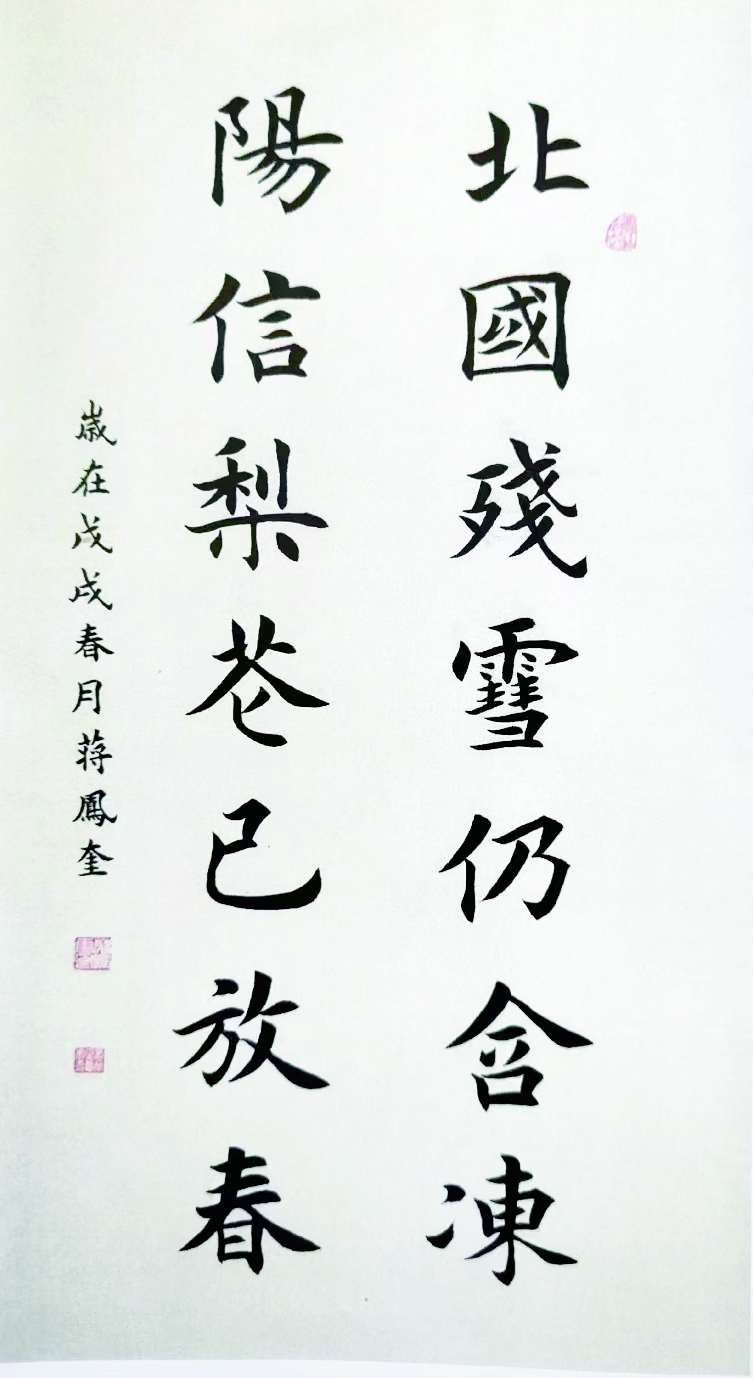 北國殘雪仍含凍
陽信梨花已放春
歲在戊戌春月蔣鳳奎